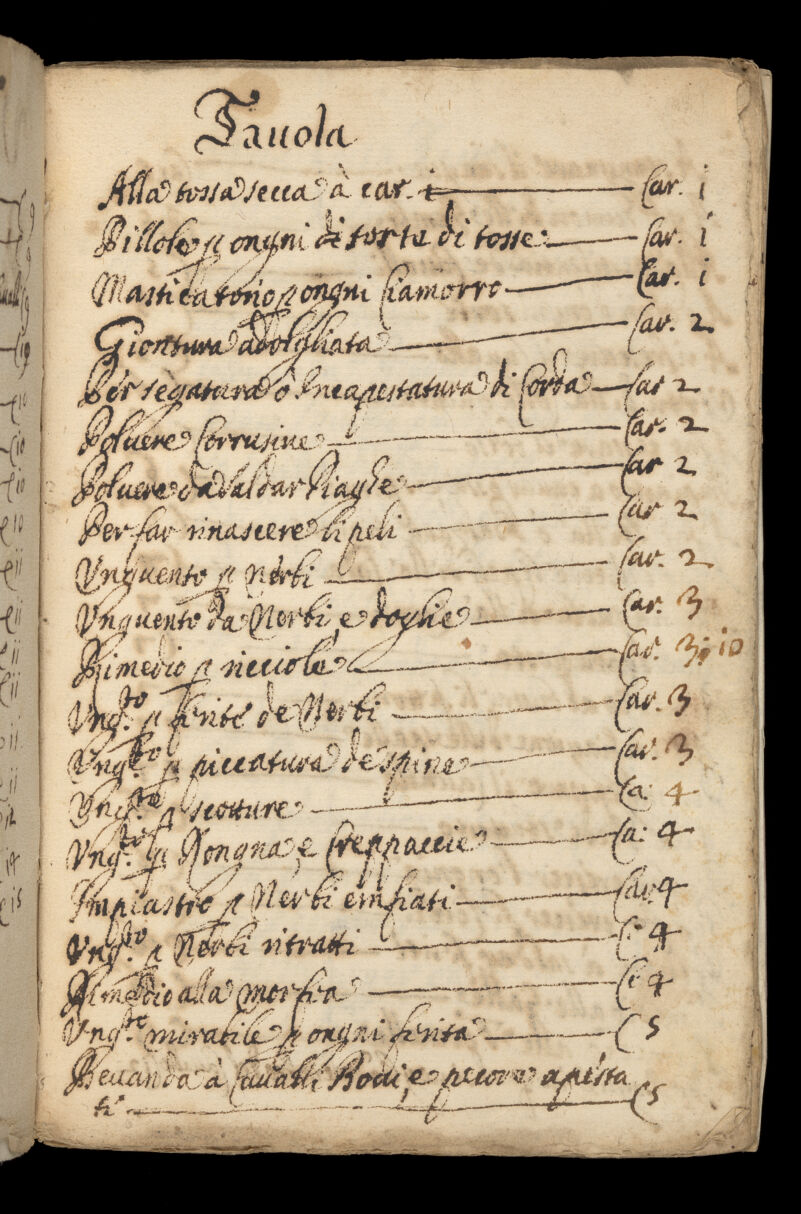 Tauola
Alla tossa secca à car. i Car. i
Pillole p ongni di sorte di tosse Car. i
Masticatorio p ongni Ciamorro Car. i
Giontura adolgliata Car. 2
Per segatura ò Incapestatura di Corda Car 2
Poluere Corrusiue Car. 2
Poluere da Saldar Piaghe Car 2
Per far rinascere li peli Car 2
Vnguento p nerbi Car. 2
Vnguento da Nerbi, e doglie Car. 3
Rimedio p ricciole Car. 3, 10
Vng.to p ferite de Nerbi Car. 3
Vng.to p piccatura de spine Car. 3
Vng.to p scotture Ca: 4
Vng.to p Rongna, e Creppaccie Ca: 4
Impiastro p Nerbi emfiati Car 4
Vng.to p Nerbi ritratti C: 4
Rimedio alla morfea C: 4
Vng.to mirabile p ongni ferita C 5
Beuanda à Caualli Boui, e pecore apesta
ti C 5